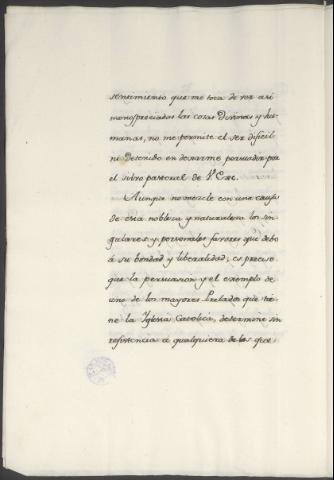 sentimiento que me toca de ver asi
menospreciadas las cosas Divinas y hu-
manas, no me permite el ser dificil
ni detenido en dexarme persuadir por
el silvo pastoral de V. Exc.
Aunque no mezcle con una causa
de esta nobleza y naturaleza los sin-
gulares y personales favores que debo
á su bondad y liberalidad; es preciso
que la persuasion y el exemplo de
uno de los mayores Prelados que tie-
ne la Yglesia Catolica, determine sin
resistencia á qualquiera de los que